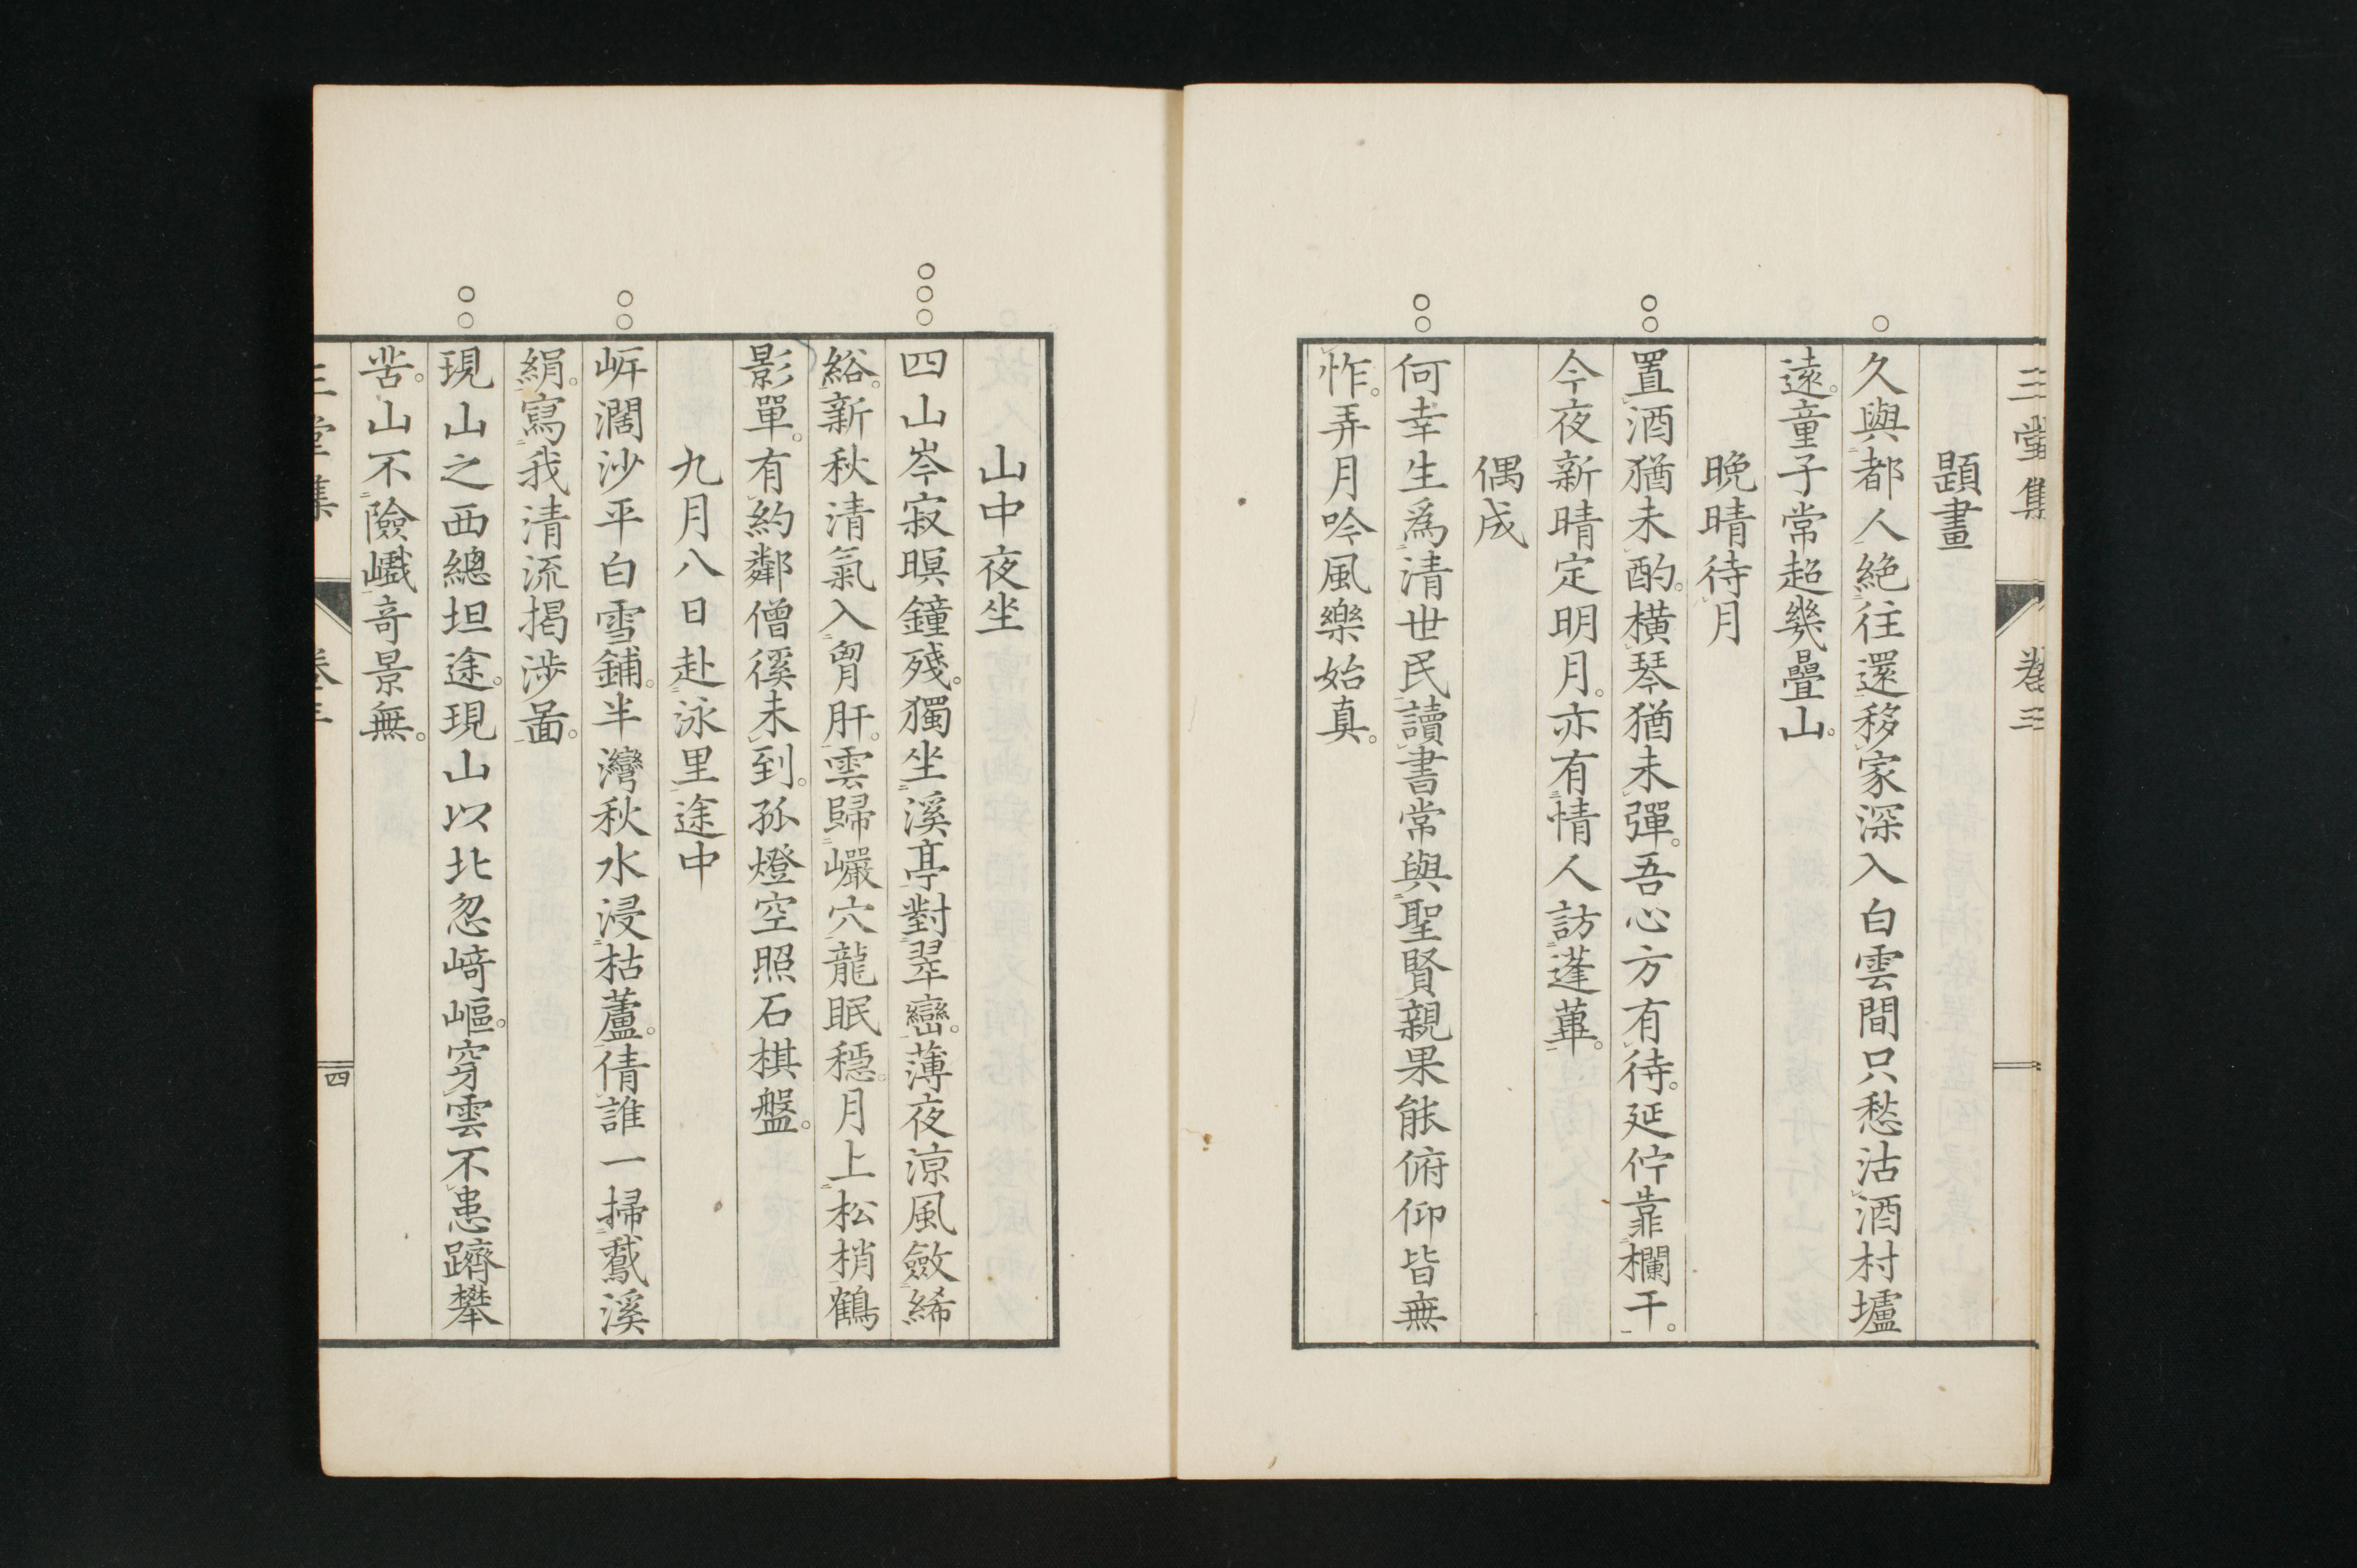 三堂集 卷三
題畫
久與都人絶往還移家深入白雲間只愁沽酒村壚
遠。童子常超幾疊山。
晩晴待月
置酒猶未酌。橫琴猶未彈。吾心方有待。延佇靠欄干。
今夜新晴定明月。亦有情人訪蓬蓽。
偶成
何幸生爲清世民讀書常與聖賢親果能俯仰皆無
怍。弄月吟風樂始真。
山中夜坐
四山岑寂暝鐘殘。獨坐溪亭對翠巒。薄夜涼風斂絺
綌。新秋清氣入胷肝。雲歸巖穴龍眠穩。月上松梢鶴
影單。有約鄰僧徯未到。孤燈空照石棋盤。
九月八日赴泳里途中
岍濶沙平白雪鋪。半灣秋水浸枯蘆。倩誰一掃鵞溪
絹。寫我清流揭渉啚。
現山之西總坦途。現山以北忽崎嶇。穿雲不患躋攀
苦。山不險巇竒景無。
三堂集 卷三 四